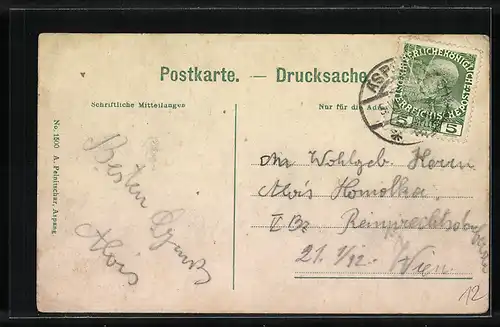 Postkarte. — Drucksache
Schriftliche Mitteilungen
Nur für die Adr
ASP
KAISERLICHE KÖNIGLICHE ÖSTERREICHISCHE POST
5 5
No. 1500 A. Feinitscher, Aspang
Besten Gruß
Alois
Wohlgeb. Herrn
Alois Homolka
V Bz Reinprechtsdorfer
21. 1/12. Wien
12